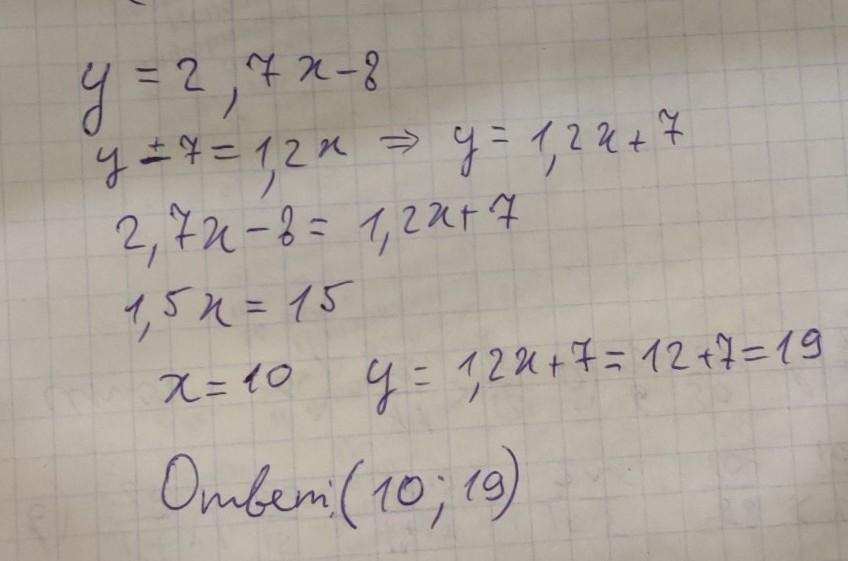 y = 2,7x-8
y ± 7 = 1,2x ⇒ y = 1,2x + 7
2,7x - 8 = 1,2x + 7
1,5x = 15
x = 10 y = 1,2x + 7 = 12 + 7 = 19
Ответ: (10; 19)